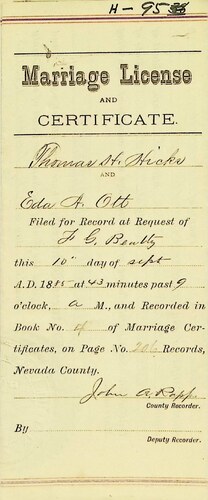 H-95
Marriage License
AND
CERTIFICATE.
Thomas H. Hicks
AND
Eda A. Ott
Filed for Record at Request of
F G. Beatty
this 10" day of Sept
A.D. 1885 at 43 minutes past 9
o'clock, a M., and Recorded in
Book No. 4 of Marriage Cer-
tificates, on Page No. 206 Records,
Nevada County.
John A. Rapp
County Recorder.
By
Deputy Recorder.